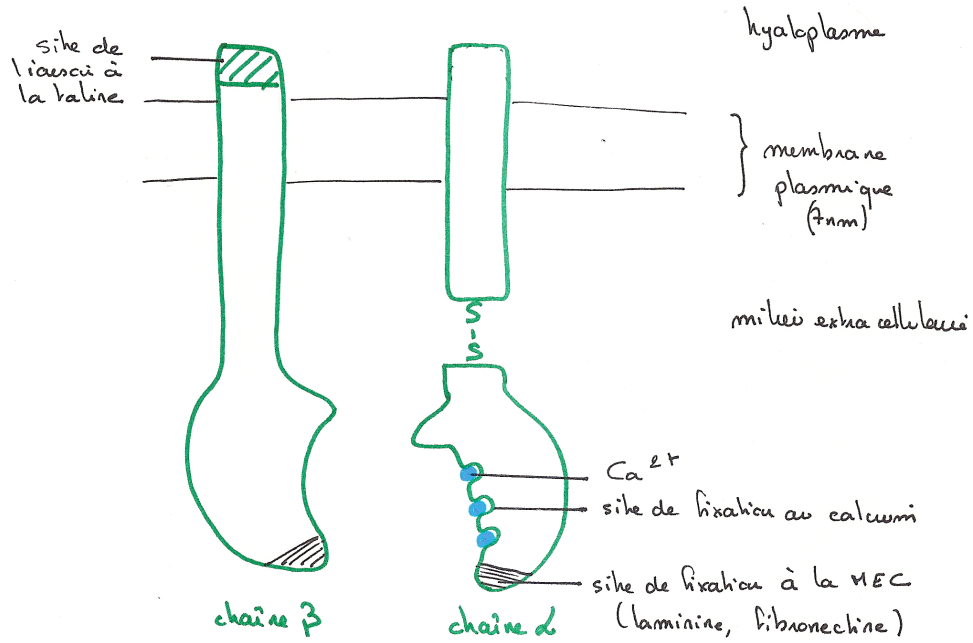 hyaloplasme
site de
liaison à
la taline
membrane
plasmique
(7nm)
milieu extracellulaire
S
-
S
Ca²⁺
site de fixation au calcium
site de fixation à la MEC
(laminine, fibronectine)
chaîne β
chaîne α